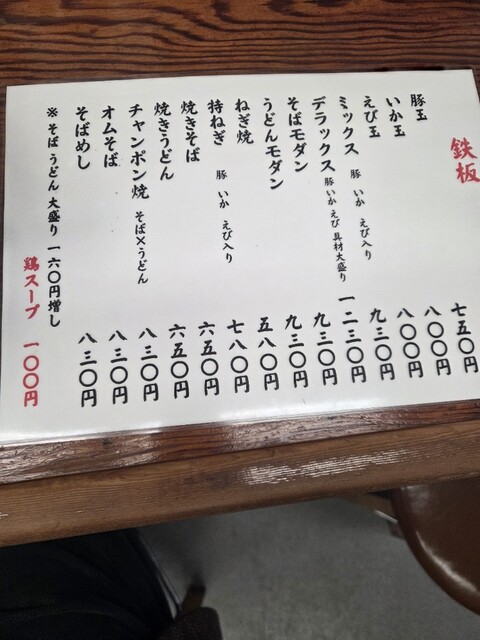 鉄板
豚玉 七五〇円
いか玉 八〇〇円
えび玉 八〇〇円
ミックス 豚 いか えび入り 九三〇円
デラックス 豚 いか えび 具材大盛り 一二三〇円
そばモダン 九三〇円
うどんモダン 九三〇円
ねぎ焼 五八〇円
特ねぎ 豚 いか えび入り 七八〇円
焼きそば 六五〇円
焼きうどん 六五〇円
チャンポン焼 そば×うどん 八三〇円
オムそば 八三〇円
そばめし 八三〇円
※ そば うどん 大盛り 一六〇円増し
鶏スープ 一〇〇円